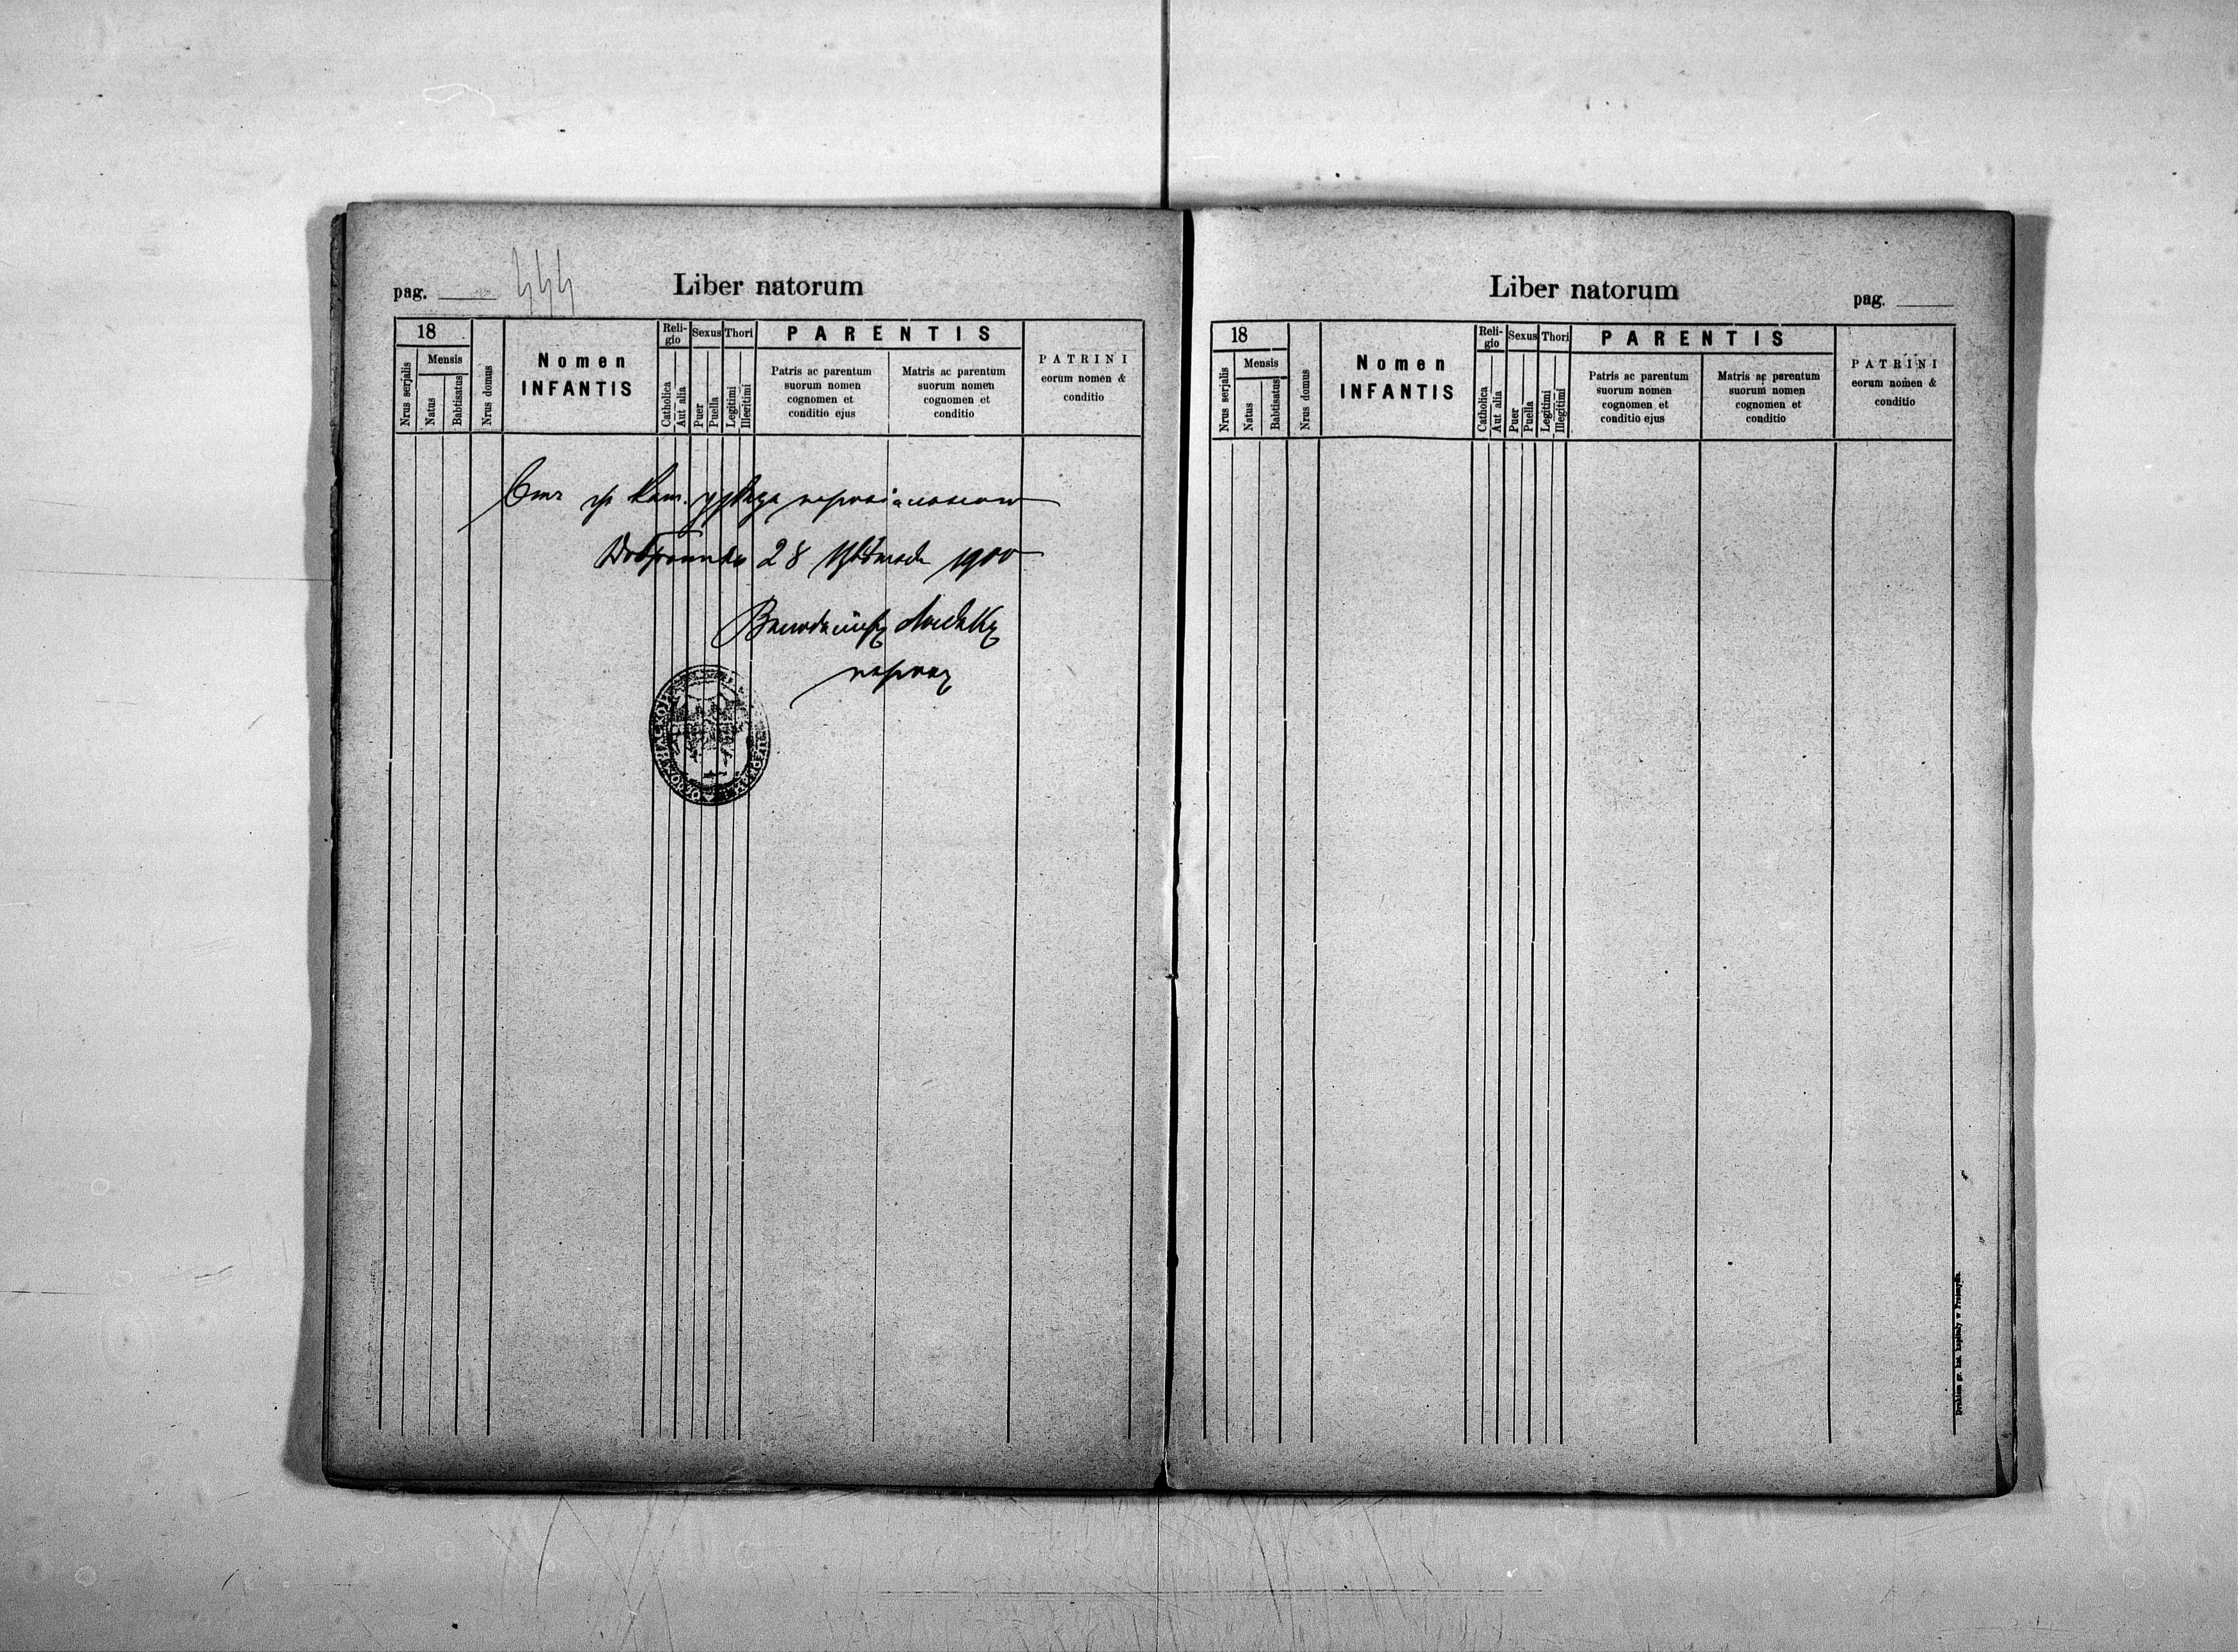 pag.
Liber natorum
18
Mensis
Nrus serjalis
Natus
Babtisatus
Nrus domus
Nomen
INFANTIS
Reli-
gio
Catholica
Aut alia
Sexus
Puer
Puella
Thori
Legitimi
Illegitimi
PARENTIS
Patris ac parentum
suorum nomen
cognomen et
conditio ejus
Matris ac parentum
suorum nomen
cognomen et
conditio
PATRINI
eorum nomen &
conditio
28 1900
Liber natorum
pag.
18
Mensis
Nrus serjalis
Natus
Babtisatus
Nrus domus
Nomen
INFANTIS
Reli-
gio
Catholica
Aut alia
Sexus
Puer
Puella
Thori
Legitimi
Illegitimi
PARENTIS
Patris ac parentum
suorum nomen
cognomen et
conditio ejus
Matris ac parentum
suorum nomen
cognomen et
conditio
PATRINI
eorum nomen &
conditio
Drukiem gr. kat. kapituły w Przemyślu.